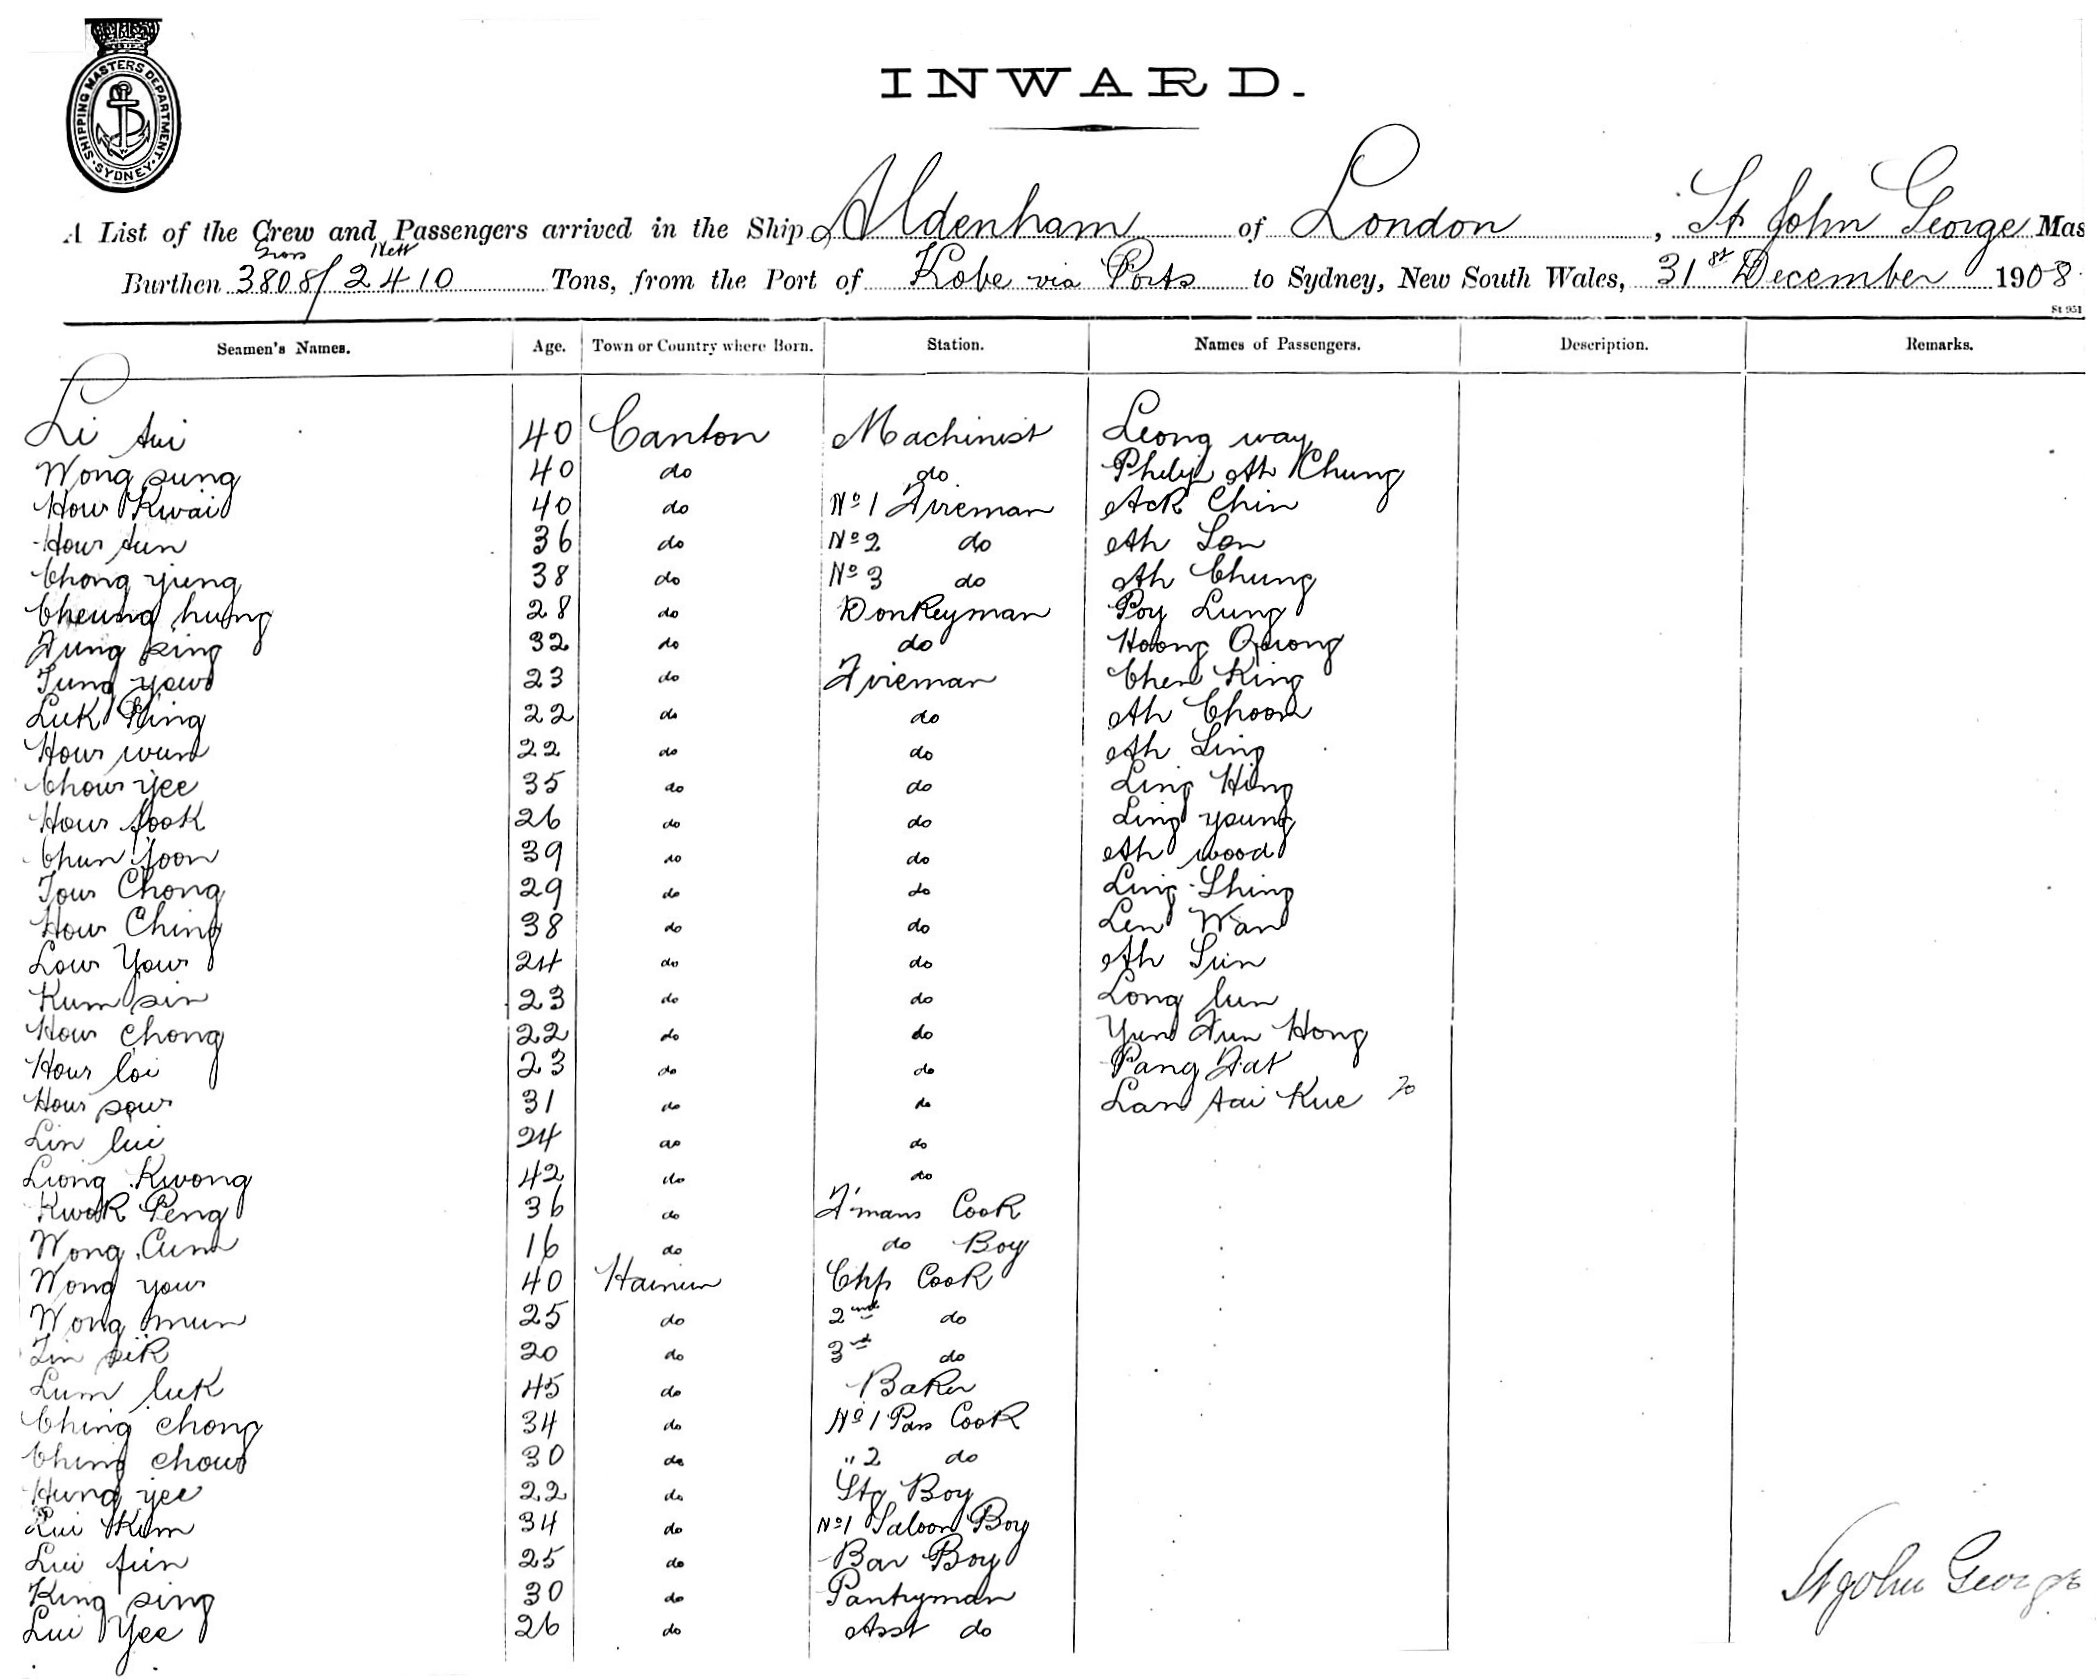 SHIPPING MASTERS DEPARTMENT. SYDNEY.
INWARD.
A List of the Crew and Passengers arrived in the Ship Aldenham of London, St John George Mas
Gross Nett
Burthen 3808/2410 Tons, from the Port of Kobe via Ports to Sydney, New South Wales, 31st December 1908
St 951
Seamen's Names. Age. Town or Country where Born. Station. Names of Passengers. Description. Remarks.
Li 40 Canton Machinist Leong way
Wong sung 40 do do Philip Ah Chung
How Kwai 40 do No 1 Fireman Ack Chin
How 36 do No 2 do Ah
Chong yung 38 do No 3 do Ah Chung
Cheung hung 28 do Donkeyman Poy Lung
Fung sing 32 do do Hoong Quong
Tung yow 23 do Fireman Chen King
Luk 22 do do Ah Choon
How wun 22 do do Ah Ling
Chow yee 35 do do Ling Hing
How fook 26 do do Ling young
Chun foon 39 do do Ah wood
Tow Chong 29 do do Ling Shing
How Ching 38 do do Len Wan
Low Yow 24 do do Ah Sun
Kum sin 23 do do Long lun
How chong 22 do do Yun Fun Hong
How loi 23 do do Pang Fat
How sow 31 do do Lan tai Kue 20
Lin lui 24 do do
Liong Kwong 42 do do
Kwok Peng 36 do F'mans Cook
Wong Cum 16 do do Boy
Wong yow 40 Hainun Chf Cook
Wong mun 25 do 2nd do
sik 20 do 3rd do
Lum luk 45 do Baker
Ching chong 34 do No 1 Pass Cook
Ching chow 30 do " 2 do
Hung yee 22 do Stg Boy
Lui Kum 34 do No 1 Saloon Boy
Lui fun 25 do Bar Boy
King sing 30 do Pantryman
Lui Yee 26 do Asst do
St John George